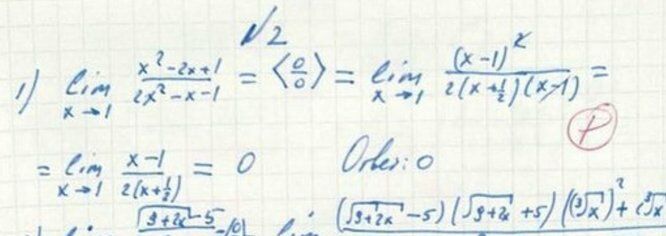 √2
1) lim x→1 (x²-2x+1)/(2x²-x-1) = <0/0> = lim x→1 (x-1)²/(2(x+1/2)(x-1)) =
= lim x→1 (x-1)/(2(x+1/2)) = 0 Ответ: 0
√9+2x -5 lim (√9+2x -5)(√9+2x +5)((∛x)²+